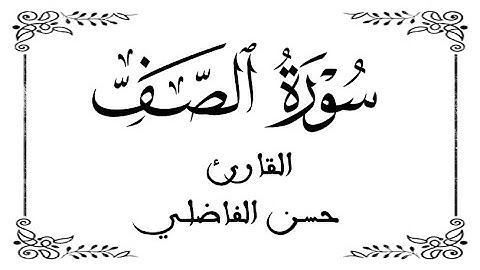 سُورَةُ ٱلصَّفِّ
القارئ
حسن الفاضلي